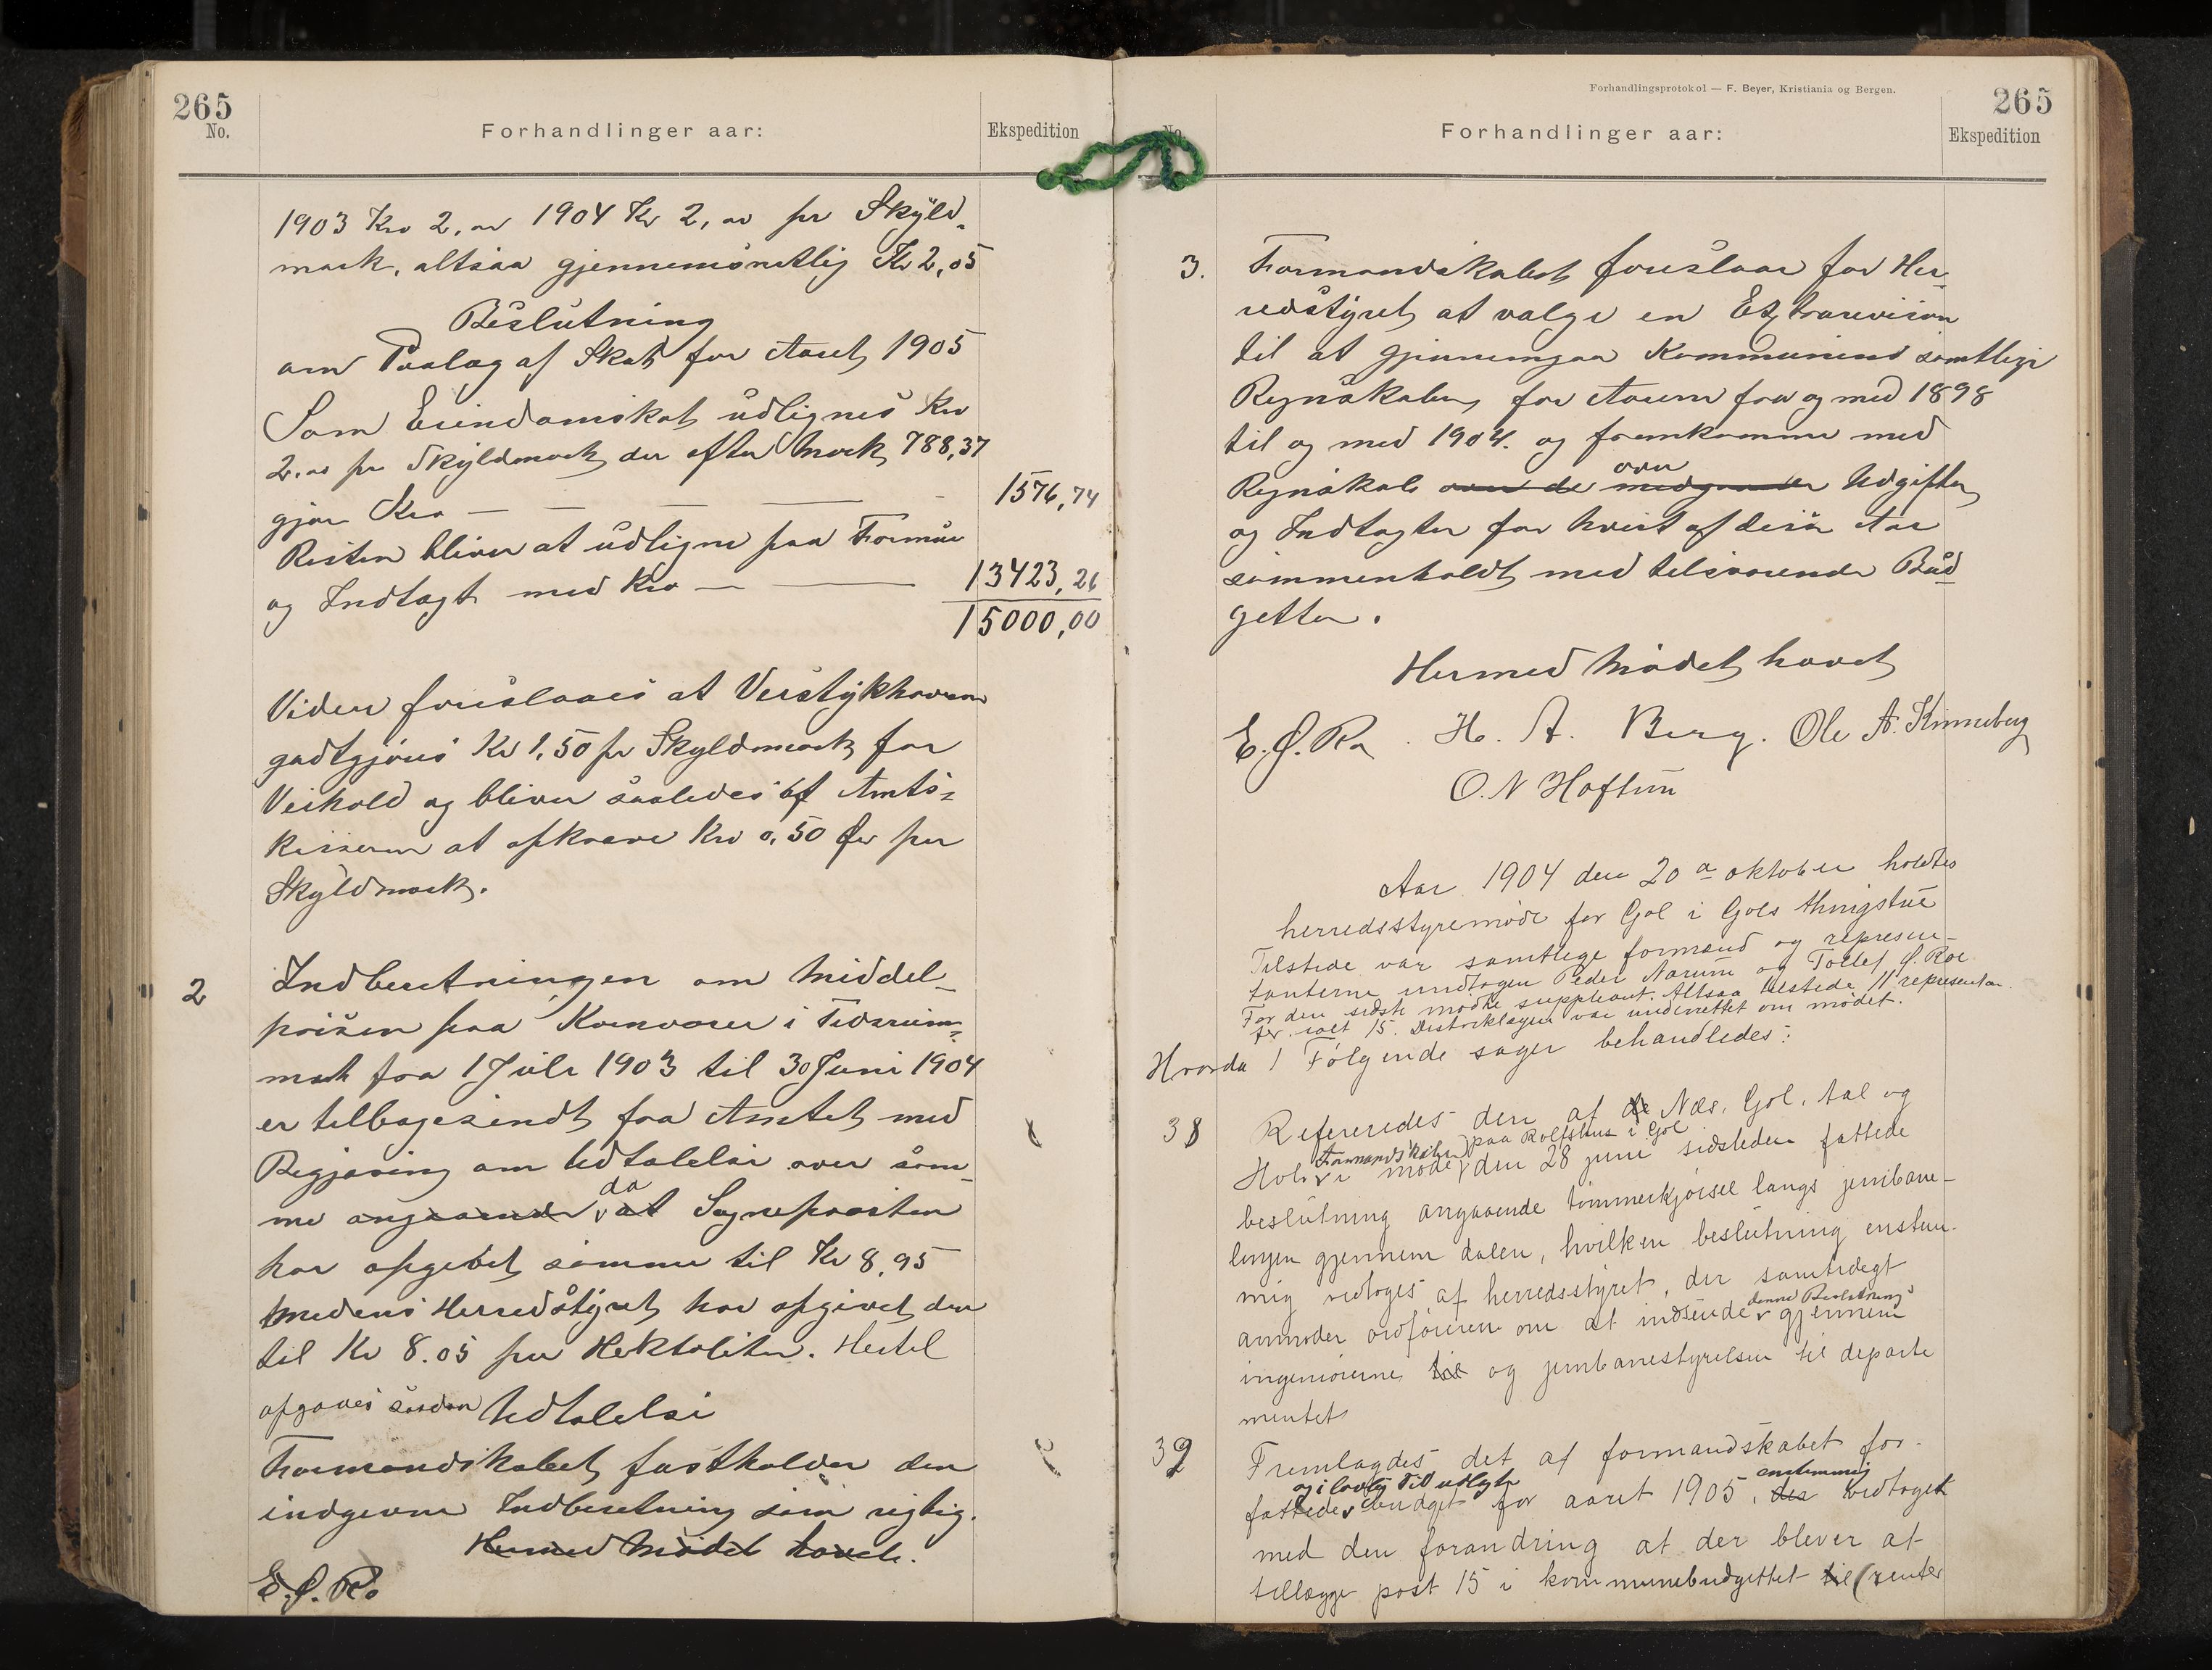 265
No.
Forhandlinger aar:
Ekspedition
1903 Kro 2,00 1904 Kr 2,00 pr Skyld-
mark, altsaa gjennemsnetlig Kr 2,05
Beslutning
om Paalag af Skat for Aaret 1905
Som Eiendomskat udlignes Kro
2.00 pr Skyldmark der efter Mark 788,37
gjør Kro — — — — 1576,74
Resten bliver at udligne paa Formue
og Indtægt med Kro — — 13423,26
15000,00
Videre foreslaaes at Veistykhaverne
godtgjøres Kr 1,50 pr Skyldmark for
Veihold og bliver saaledes af Amts-
kasseren at opkræve Kro 0,50 Øre per
Skyldmark.
2 Indberetningen om Middel-
prisen paa Kornvarer i Tidsrum-
met fra 1 Juli 1903 til 30 Juni 1904
er tilbagesendt fra Amtet med
Begjæring om Udtalelse over sam-
me angaaende da at Sognepræsten
har opgivet samme til Kr 8,95
medens Herredstyret har opgivet den
til Kr 8.05 per Hektoliter. Hertil
afgaves saadan Udtalelse
Formandskabet fastholder den
indgivne Indberetning som rigtig.
Hermed Mødet hævet.
E. Ø. Ro
Forhandlingsprotokol — F. Beyer, Kristiania og Bergen.
265
No.
Forhandlinger aar:
Ekspedition
3. Formandskabet foreslaar for Her-
redstyret at vælge en Extrarevisor
til at gjennemgaa Kommunens samtlige
Regnskaber for Aarene fra og med 1898
til og med 1904. og fremkomme med
Regnskab over de medgaaede over Udgifter
og Indtægter for hvert af disse Aar
sammenholdt med tilsvarende Bud-
getter.
Hermed Mødet hævet
E. Ø. Ro. H. A. Berg. Ole A. Kinneberg
O. N Hoftun
Aar 1904 den 20de oktober holdtes
herredsstyremøde for Gol i Gols thingstue
Tilstede var samtlege formænd og represen-
tanterne undtagen Peder Narum og Tollef Ø. Roe
For den sidste mødte suppleant. Altsaa tilstede 11 representan-
ter ialt 15. Distriktslægen var underrettet om mødet.
Hvorda / Følgende sager behandledes:
38 Refereredes den af de Næs, Gol, Aal og
Hol Formandskaber i møde paa Rolfshus i Gol den 28 juni sidstleden fattede
beslutning angaaende tømmerkjørsel langs jernbane-
linjen gjennem dalen, hvilken beslutning enstem-
mig vedtoges af herredsstyret, der samtidegt
anmoder ordføreren om at indsende denne Beslutning gjennem
ingeniørerne til og jernbanestyrelsen til departe
mentet
39 Fremlagdes det af formandskabet for-
fattede og i lovlig Tid udlagte budget for aaret 1905, des enstemmig vedtaget
med den forandring at der blever at
tillægge post 15 i kommunebudgettet til (renter